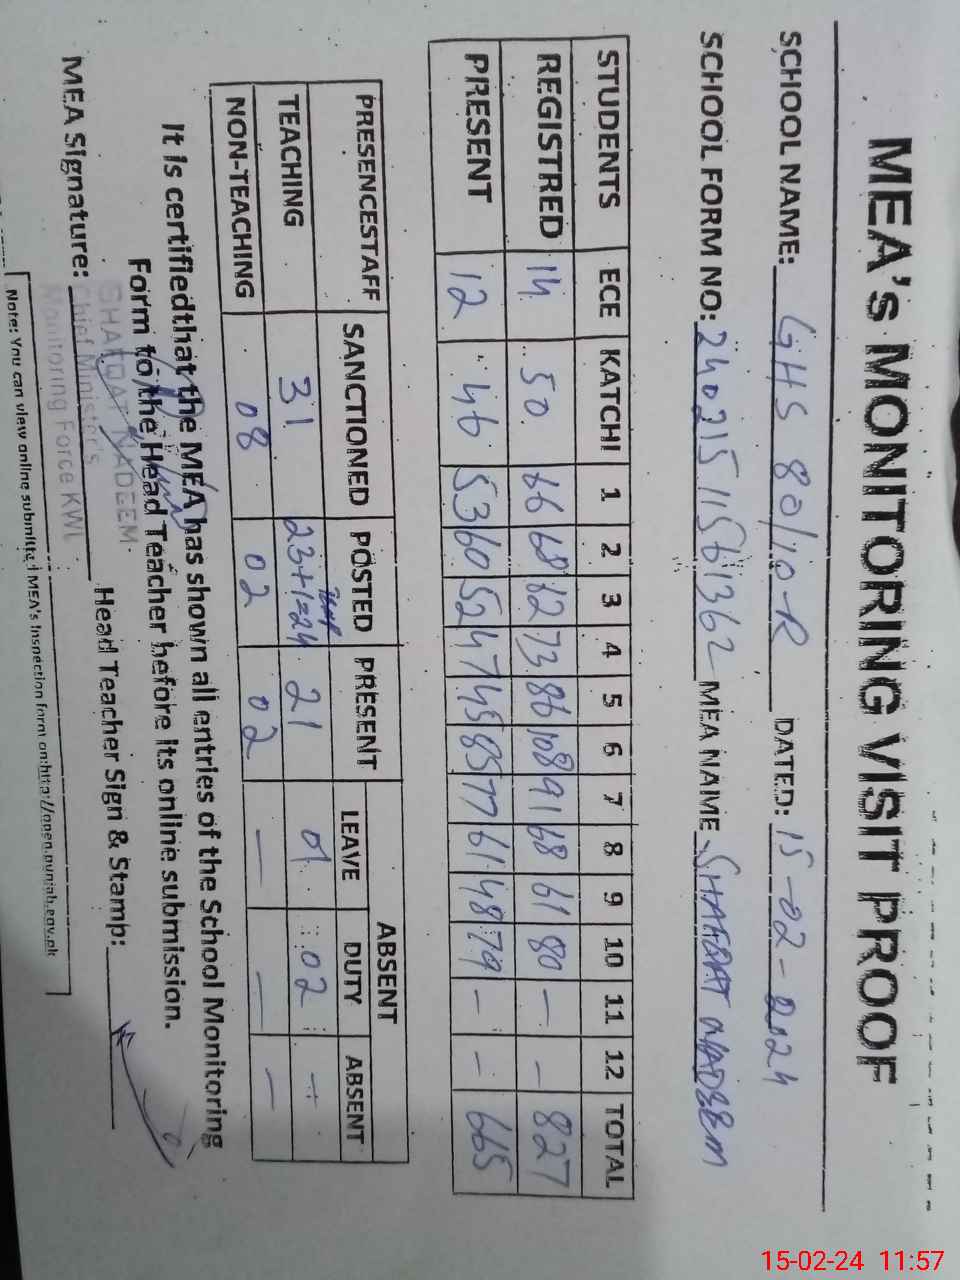 MEA's MONITORING VISIT PROOF
SCHOOL NAME: GHS 80/10-R DATED: 15-02-2024
SCHOOL FORM NO: 24021511561362 MEA NAME SHAFQAT NADEEM
STUDENTS ECE KATCHI 1 2 3 4 5 6 7 8 9 10 11 12 TOTAL
REGISTRED 14 50 66 68 62 73 86 108 91 68 61 80 - - 827
PRESENT 12 46 53 60 52 47 45 85 77 61 48 79 - - 665
PRESENCESTAFF SANCTIONED POSTED PRESENT ABSENT
LEAVE DUTY ABSENT
TEACHING 31 23+1=24 21 01 02 -
NON-TEACHING 08 02 02 - - -
It is certifiedthat the MEA has shown all entries of the School Monitoring
Form to the Head Teacher before its online submission.
SHAFQAT NADEEM
MEA Signature: Chief Minister's Head Teacher Sign & Stamp:
Monitoring Force KWL
Note: You can view online submitted MEA's Inspection form on:http://open.punjab.gov.pk
15-02-24 11:57